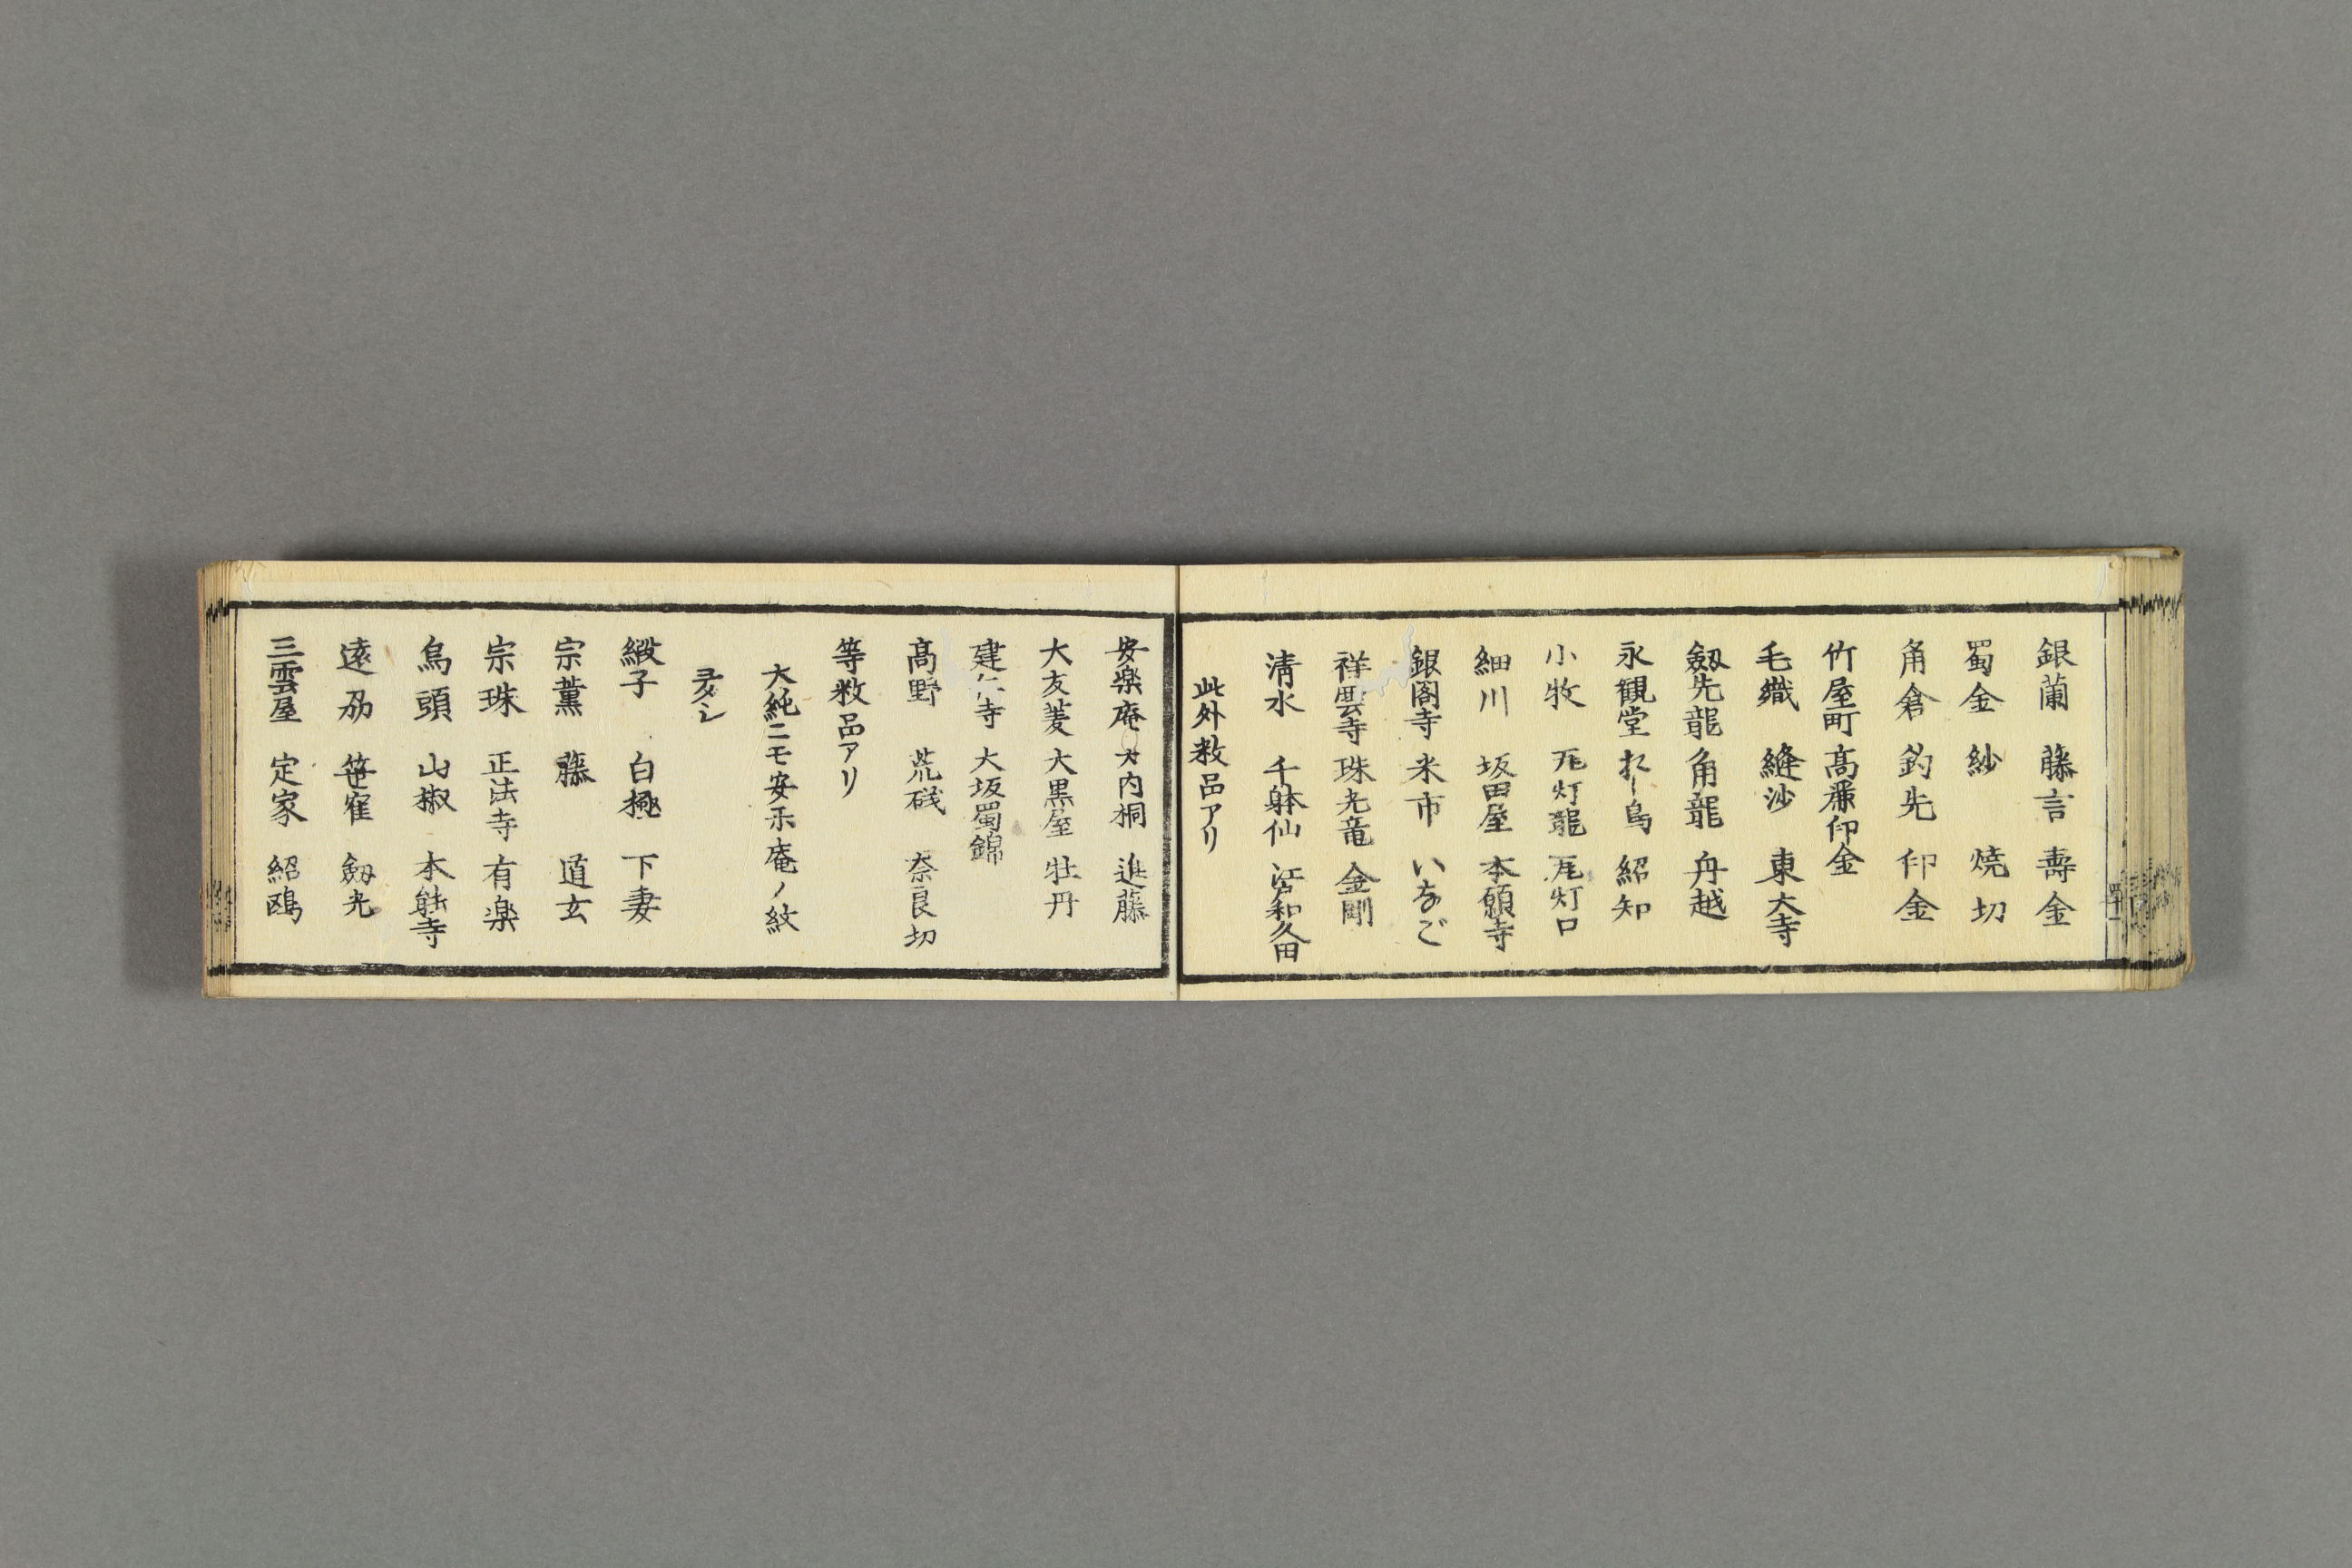 銀蘭 藤言 壽金
蜀金 紗 焼切
角倉 釣先 印金
竹屋町 高 印金
毛織 縫沙 東大寺
釼先龍 角龍 舟越
永観堂 鳥 紹知
小牧 灯龍 灯口
細川 坂田屋 本願寺
銀閣寺 米市 いなご
祥雲寺 珠光竜 金剛
清水 千躰仙 江戸和久田
此外数品アリ
安楽庵 大内桐 進藤
大友菱 大黒屋 牡丹
建仁寺 大坂蜀錦
高野 荒磯 奈良切
等数品アリ
大純ニモ安楽庵ノ紋
ヲヽシ
緞子 白極 下妻
宗薫 藤 道玄
宗珠 正法寺 有楽
烏頭 山椒 本能寺
遠州 笹 釼先
三雲屋 定家 紹鴎